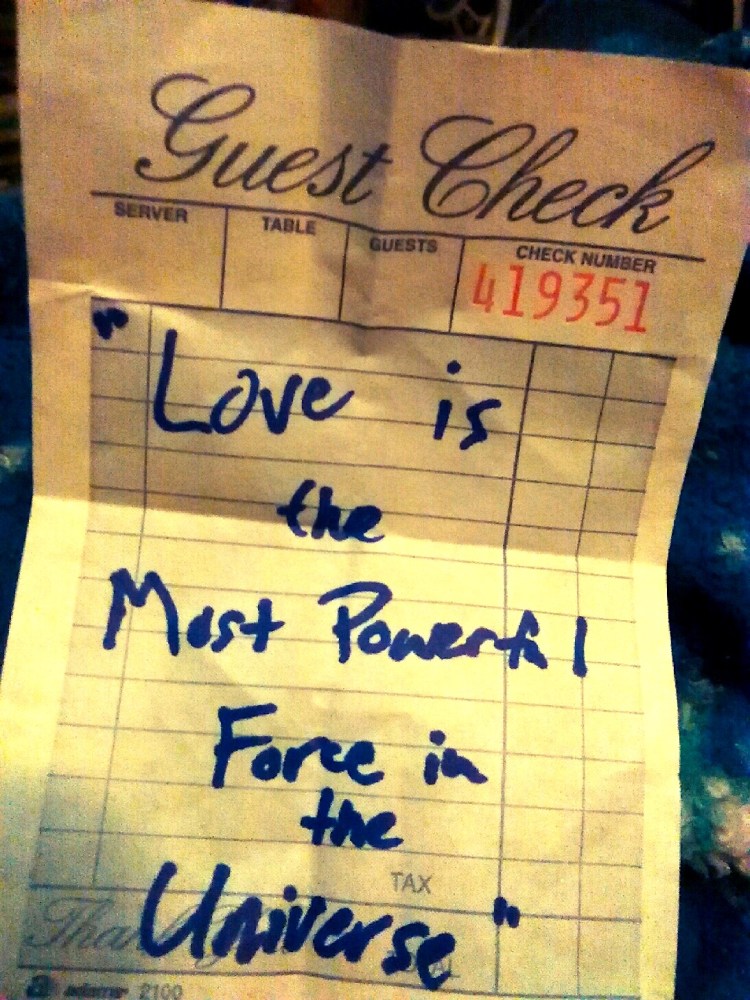 Guest Check
SERVER TABLE GUESTS CHECK NUMBER
419351
"Love is
the
Most Powerful
Force in
the
TAX
Universe"
a adams 2100